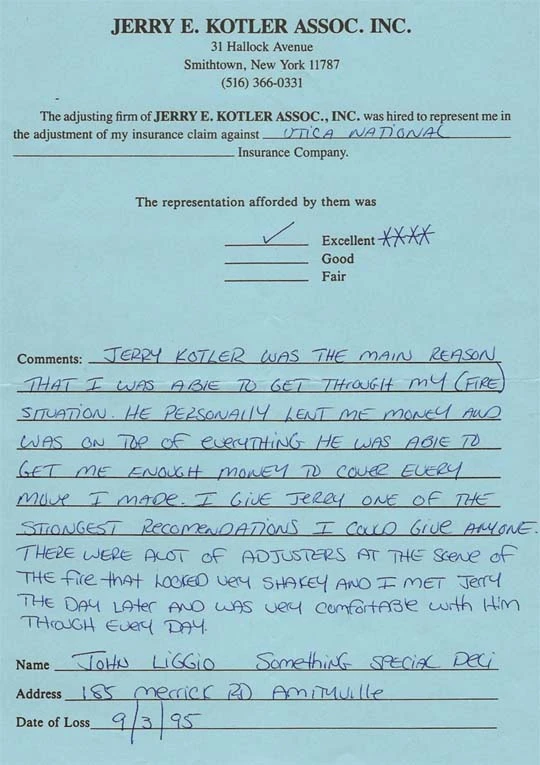 JERRY E. KOTLER ASSOC. INC.
31 Hallock Avenue
Smithtown, New York 11787
(516) 366-0331
The adjusting firm of JERRY E. KOTLER ASSOC., INC. was hired to represent me in
the adjustment of my insurance claim against UTICA NATIONAL
Insurance Company.
The representation afforded by them was
✓ Excellent XXXX
Good
Fair
Comments: JERRY KOTLER WAS THE MAIN REASON
THAT I WAS ABlE TO GET THROUGH MY (FIRE)
SITUATION. HE PERSONAllY LENT ME MONEY AND
WAS ON TOP OF EVERYTHING HE WAS ABlE TO
GET ME ENOUGH MONEY TO COVER EVERY
MOVE I MADE. I GIVE JERRY ONE OF THE
STRONGEST RECOMENDATIONS I COULD GIVE ANYONE.
THERE WERE ALOT OF ADJUSTERS AT THE SCENE OF
THE fire that LOOKED VERY SHAKEY AND I MET Jerry
THE DAY LATER AND WAS VERY COMFORTABLE with Him
THROUGH EVERY DAY.
Name JOHN LIGGIO Something SPECIAL DELI
Address 185 merrick RD AMITYVIlle
Date of Loss 9/3/95